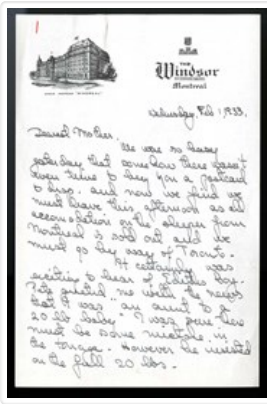 1
THE
Windsor
Montreal
Wednesday, Feb 1, 1933.
Dearest Mother,
We were so busy
yesterday that somehow there wasn't
even time to buy you a postcard
and now we find we
must leave this afternoon as all
accomodation on the sleeper from
Montreal is sold out and we
must go by way of Toront.
It certainly was
exciting to hear of
Pete greeted me with the news
that I was "an aunt to a
20 lb baby" I was sure there
must be some mistake in
the However he insisted
on the full 20 lbs.